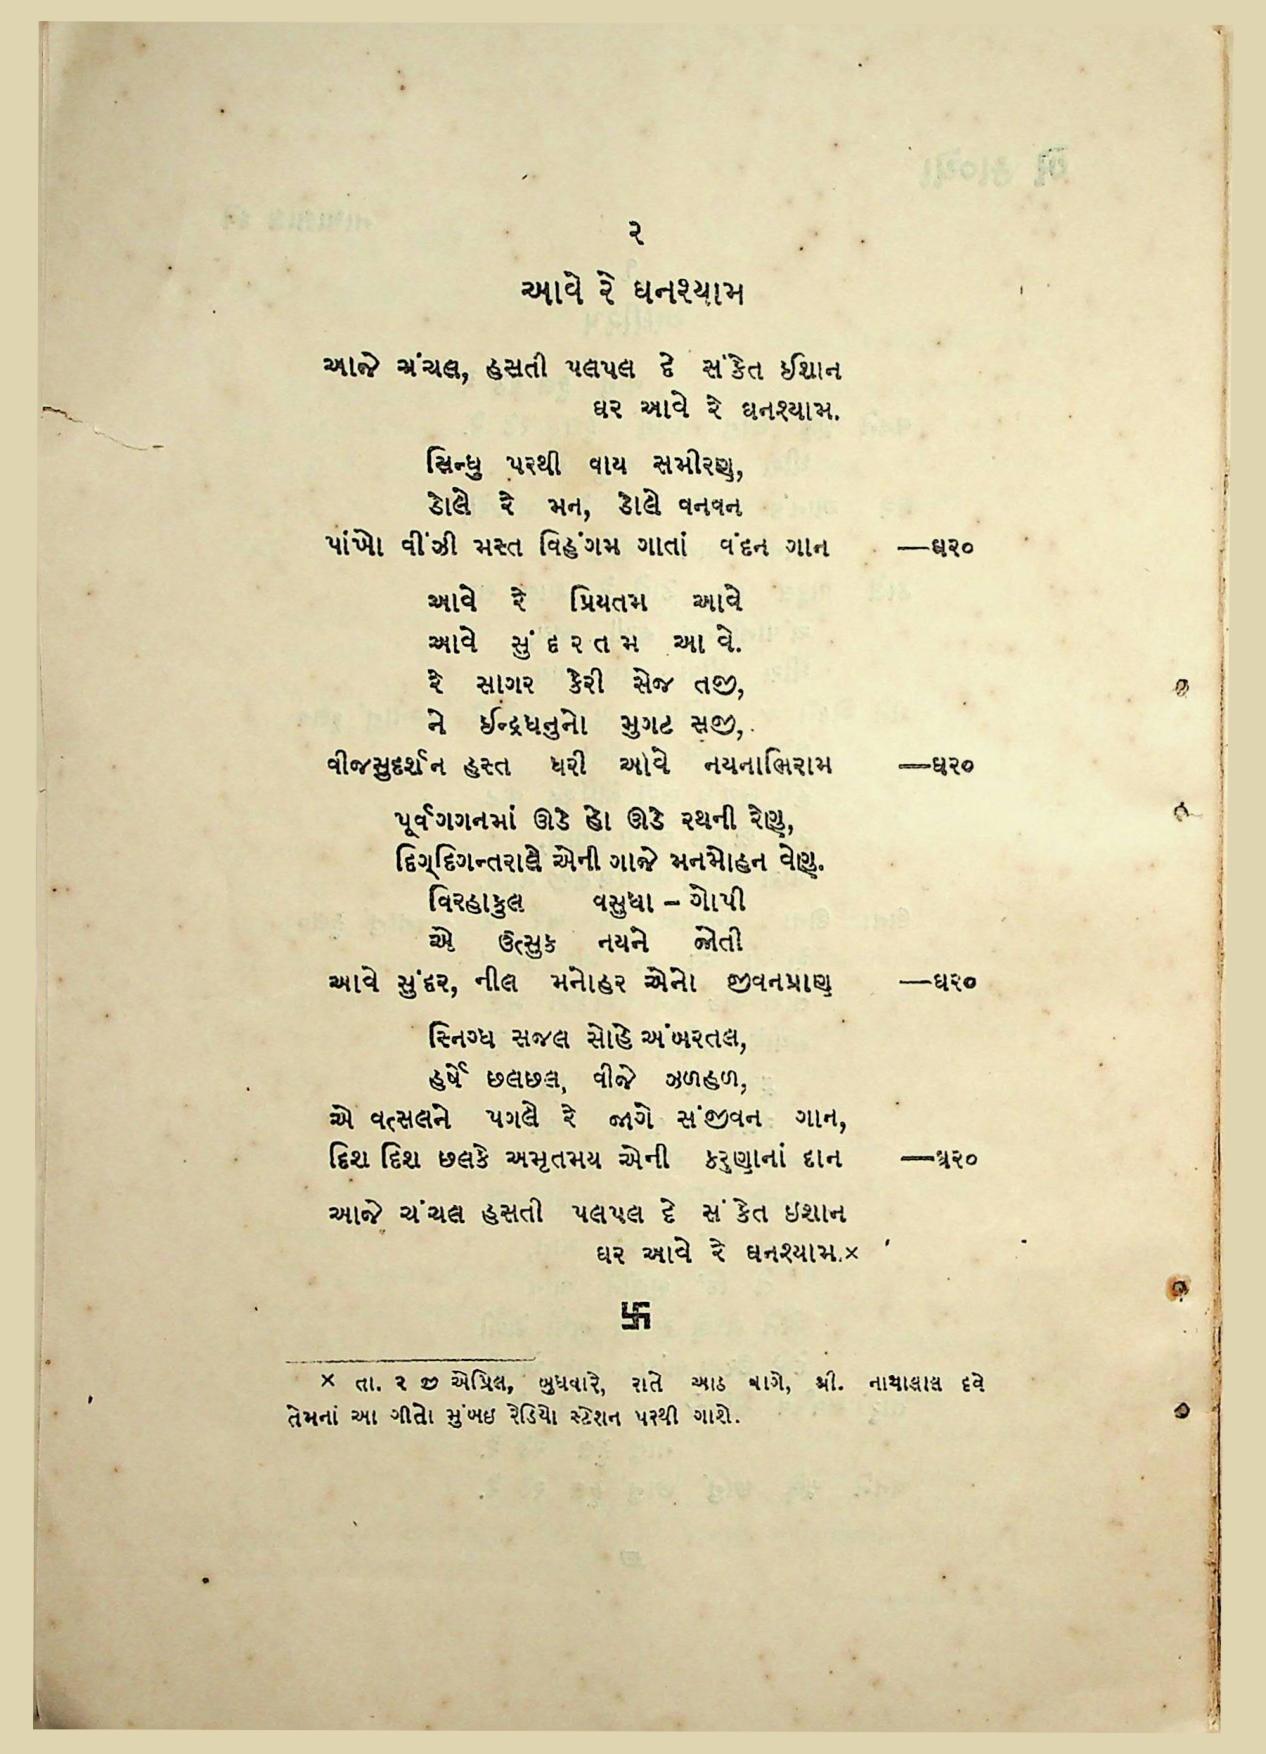 ૨
આવે રે ઘનશ્યામ
આજે ચંચલ, હસતી પલપલ દે સંકેત ઈશાન
ઘર આવે રે ઘનશ્યામ.
સિન્ધુ પરથી વાય સમીરણ,
ડોલે રે મન, ડોલે વનવન
પાંખો વીંઝી મસ્ત વિહંગમ ગાતાં વંદન ગાન —ઘર૦
આવે રે પ્રિયતમ આવે
આવે સુંદરતમ આવે.
રે સાગર કેરી સેજ તજી,
ને ઈન્દ્રધનુનો મુગટ સજી,
વીજસુદર્શન હસ્ત ધરી આવે નયનાભિરામ —ઘર૦
પૂર્વગગનમાં ઊડે હો ઊડે રથની રેણુ,
દિગ્દિગન્તરાલે એની ગાજે મનમોહન વેણુ.
વિરહાકુલ વસુધા – ગોપી
એ ઉત્સુક નયને જોતી
આવે સુંદર, નીલ મનોહર એનો જીવનપ્રાણ —ઘર૦
સ્નિગ્ધ સજલ સોહે અંબરતલ,
હર્ષે છલછલ, વીજે ઝળહળ,
એ વત્સલને પગલે રે જાગે સંજીવન ગાન,
દિશ દિશ છલકે અમૃતમય એની કરુણાનાં દાન —ઘર૦
આજે ચંચલ હસતી પલપલ દે સંકેત ઇશાન
ઘર આવે રે ઘનશ્યામ.×
卐
× તા. ૨ જી એપ્રિલ, બુધવારે, રાતે આઠ વાગે, શ્રી. નાથાલાલ દવે
તેમનાં આ ગીતો મુંબઇ રેડિયો સ્ટેશન પરથી ગાશે.